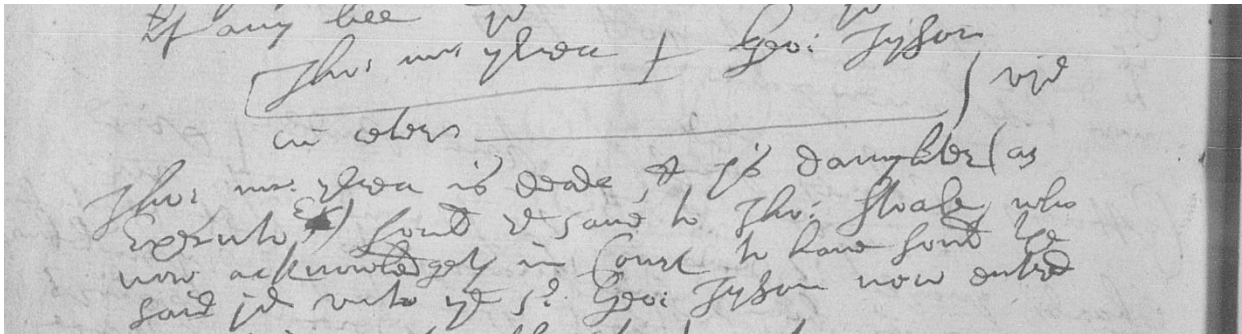 If any bee jd
Tho: mc ylrea + Geo: Tyson
cu ceteris vjd
Tho: mc. ylrea is deade & his daughter (as
Executo) sould ye same to Tho: Stoale, who
now acknowledgeth in Court to have sould the
said jd unto ye sd. Geo: Tyson now entred